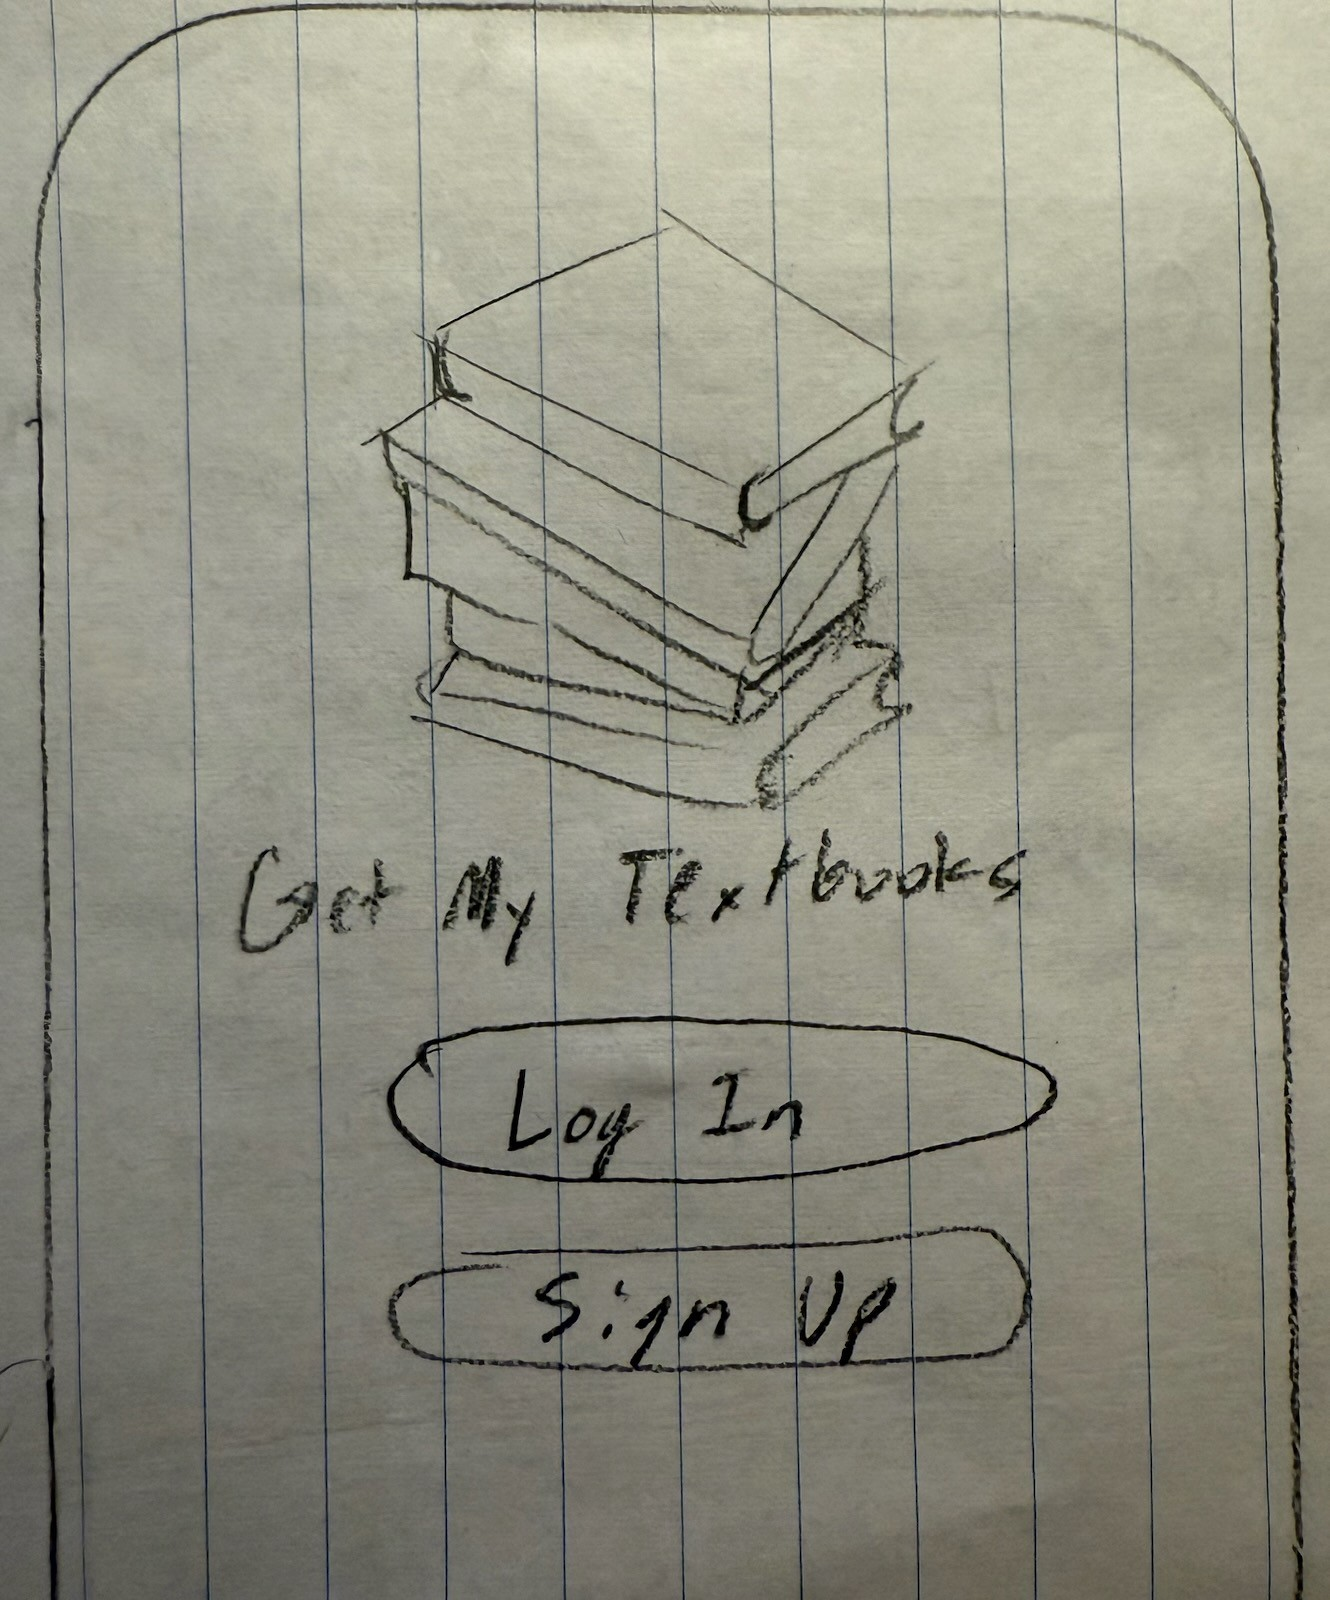 Get My Textbooks
Log In
Sign Up